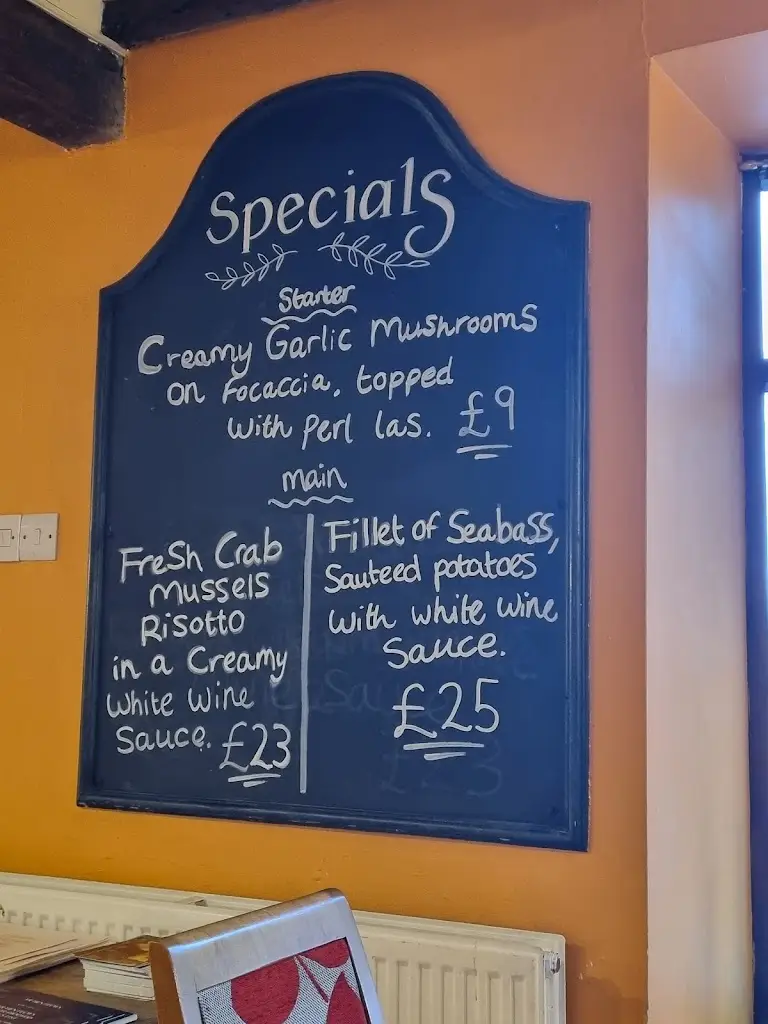 Specials
Starter
Creamy Garlic Mushrooms
on Focaccia, topped
with perl las. £9
main
Fresh Crab
mussels
Risotto
in a Creamy
white wine
Sauce. £23
Fillet of Seabass,
Sauteed potatoes
with white wine
Sauce.
£25